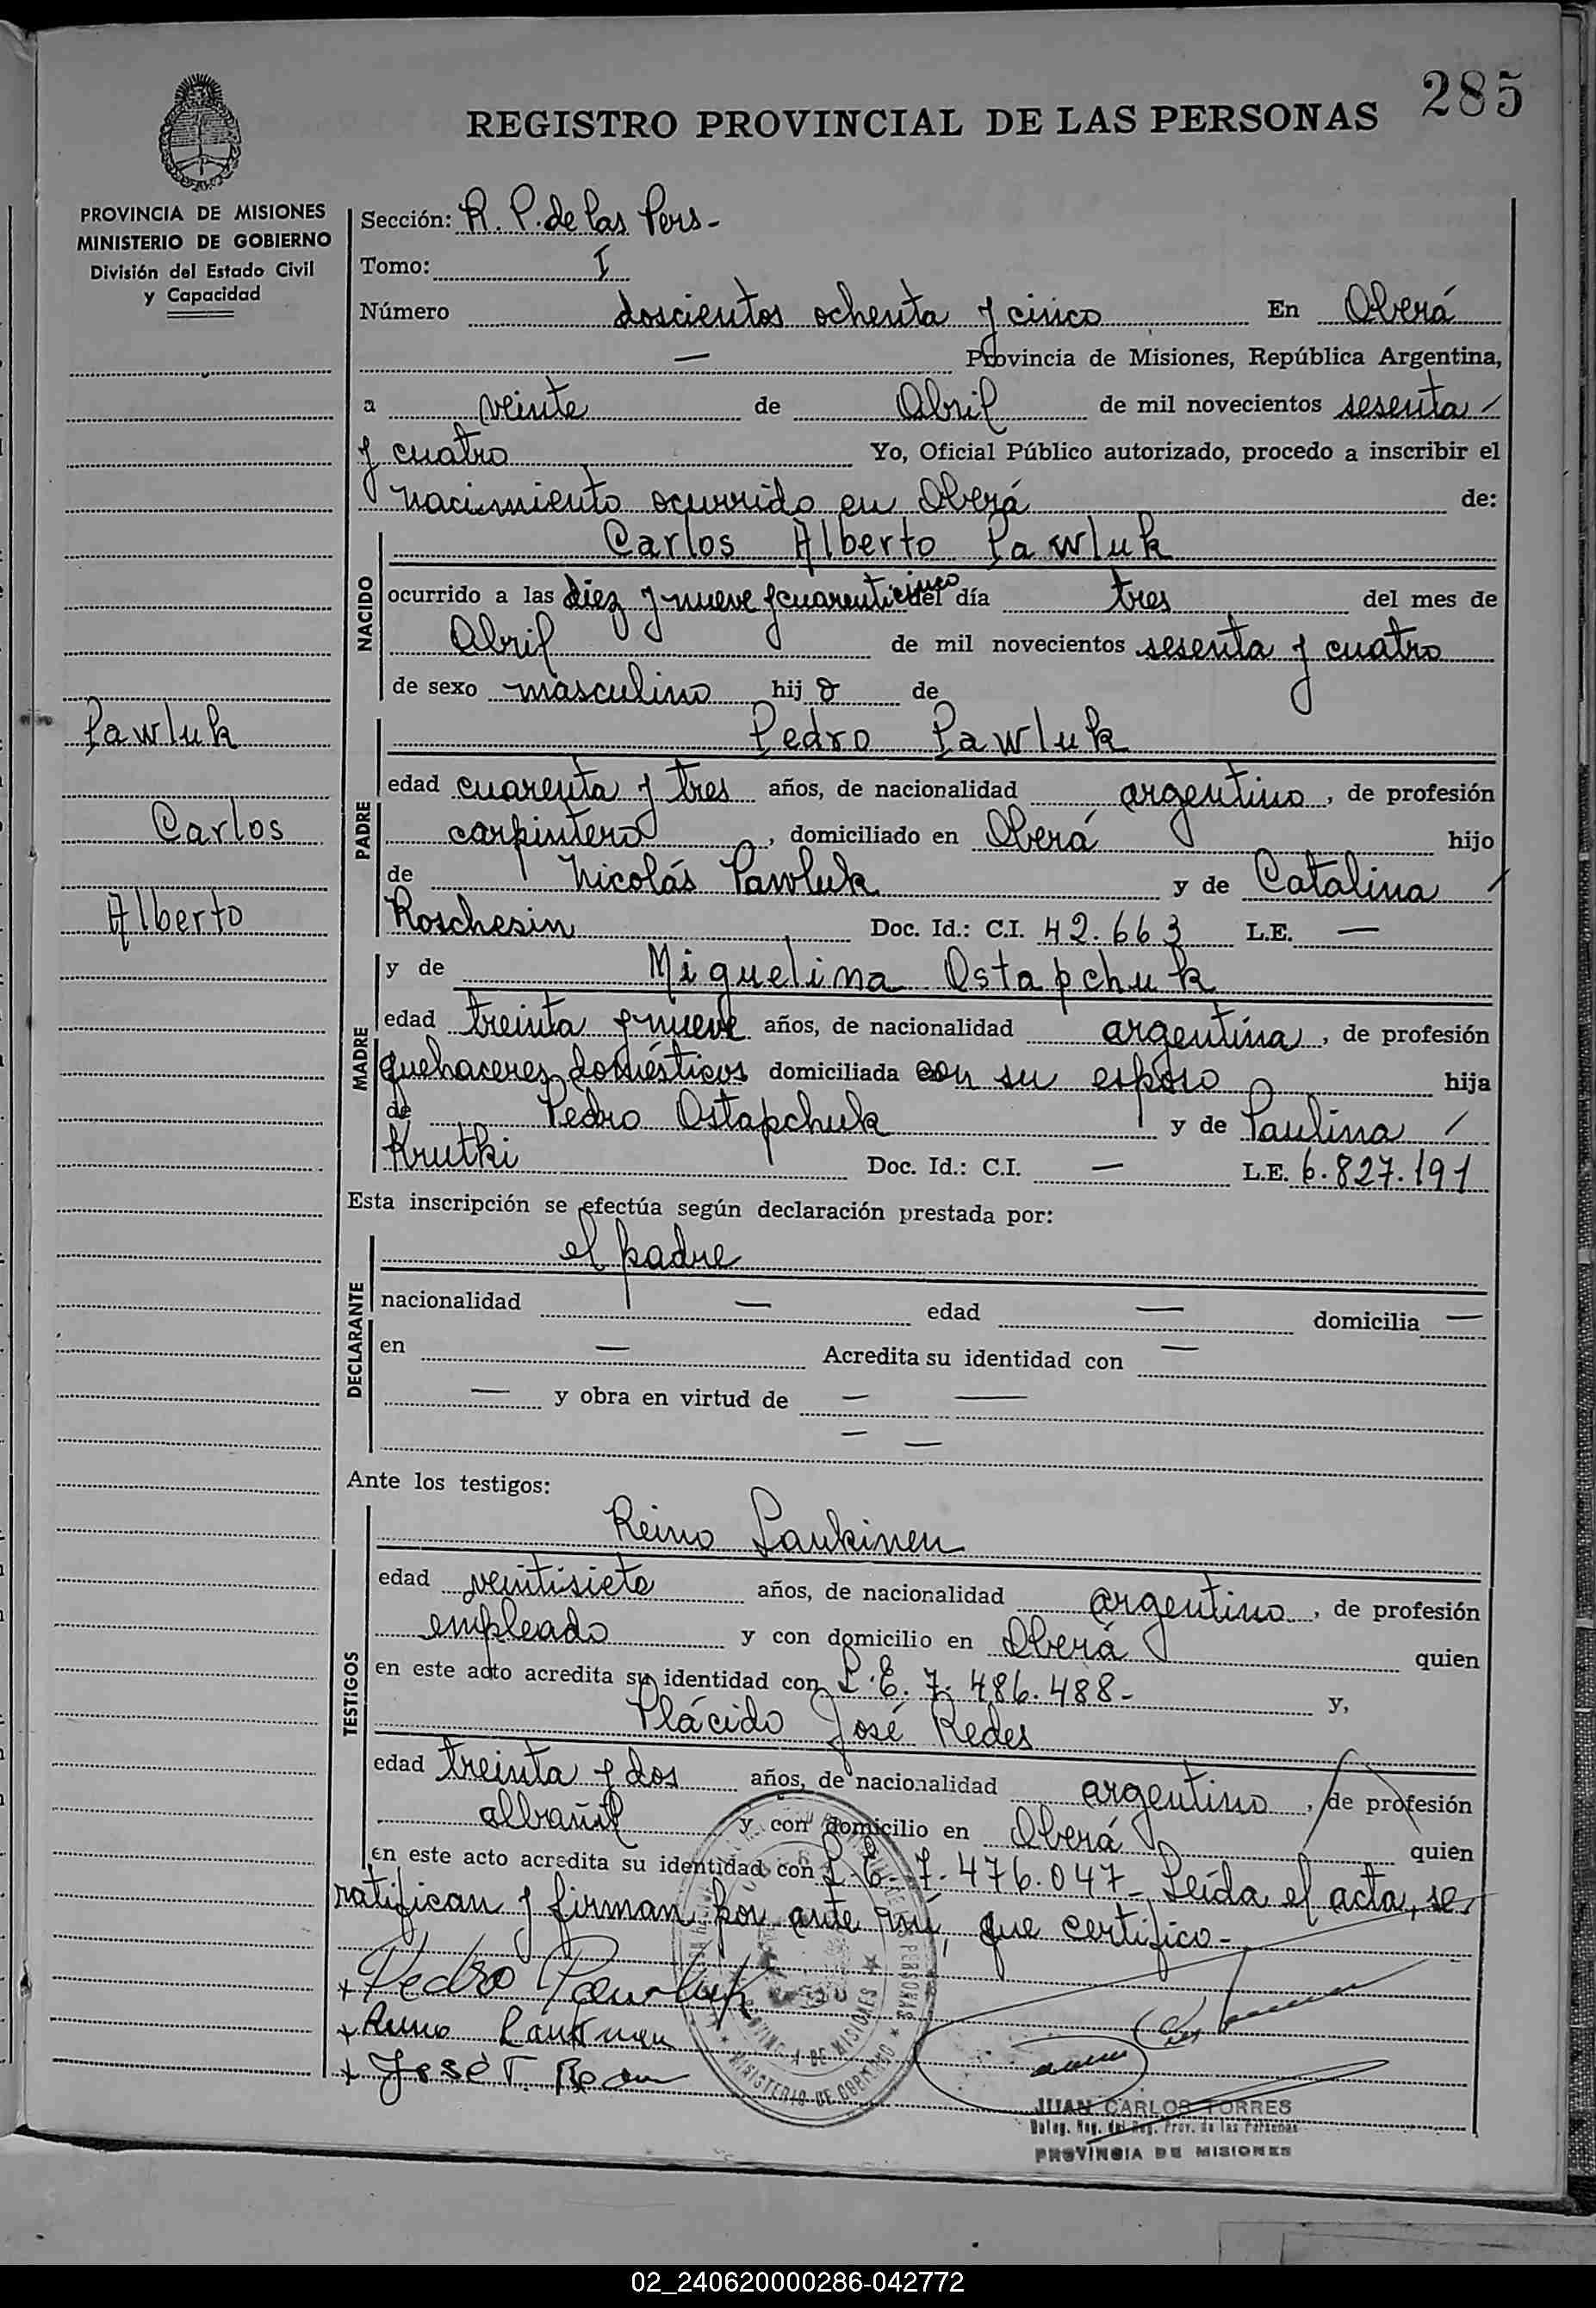 285
REGISTRO PROVINCIAL DE LAS PERSONAS
PROVINCIA DE MISIONES
MINISTERIO DE GOBIERNO
División del Estado Civil
y Capacidad
Sección: R. P. de las Pers-
Tomo: I
Número doscientos ochenta y cinco En Oberá
— Provincia de Misiones, República Argentina,
a veinte de Abril de mil novecientos sesenta
y cuatro Yo, Oficial Público autorizado, procedo a inscribir el
nacimiento ocurrido en Oberá de:
NACIDO
Carlos Alberto Pawluk
ocurrido a las diez y nueve y cuarenticinco del día tres del mes de
Abril de mil novecientos sesenta y cuatro
de sexo masculino hijo de
Pawluk
Carlos
Alberto
PADRE
Pedro Pawluk
edad cuarenta y tres años, de nacionalidad argentino, de profesión
carpintero, domiciliado en Oberá hijo
de Nicolás Pawluk y de Catalina
Roschesin Doc. Id.: C.I. 42.663 L.E. —
MADRE
y de Miguelina Ostapchuk
edad treinta y nueve años, de nacionalidad argentina, de profesión
quehaceres domésticos domiciliada con su esposo hija
de Pedro Ostapchuk y de Paulina
Krutki Doc. Id.: C.I. — L.E. 6.827.191
Esta inscripción se efectúa según declaración prestada por:
DECLARANTE
el padre
nacionalidad — edad — domicilia —
en — Acredita su identidad con —
— y obra en virtud de — —
— —
Ante los testigos:
TESTIGOS
Reino Laukinen
edad veintisiete años, de nacionalidad argentino, de profesión
empleado y con domicilio en Oberá quien
en este acto acredita su identidad con L.E. 7.486.488- y,
Plácido José Redes
edad treinta y dos años, de nacionalidad argentino, de profesión
albañil y con domicilio en Oberá quien
en este acto acredita su identidad con L.E. 7.476.047- Leída el acta, se
ratifican y firman por ante mí, que certifico-
x Pedro Pawluk
MINISTERIO DE GOBIERNO
PROVINCIA DE MISIONES
JUAN CARLOS TORRES
Deleg. Reg. del Reg. Prov. de las Personas
PROVINCIA DE MISIONES
02_240620000286-042772